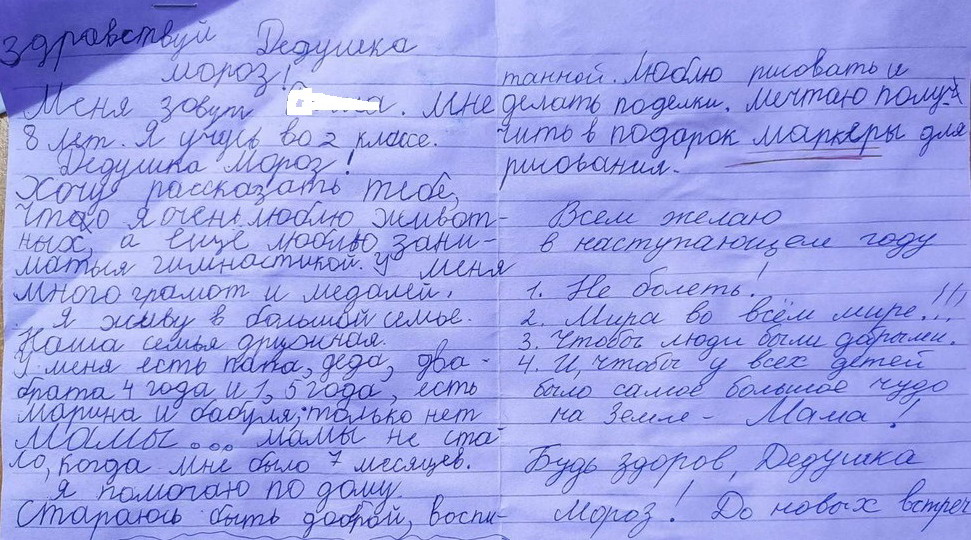 здравствуй Дедушка
мороз!
Меня зовут . Мне
8 лет. Я учусь во 2 классе.
Дедушка Мороз!
Хочу рассказать тебе,
что я очень люблю живот-
ных, а ещё люблю зани-
маться гимнастикой. У меня
много грамот и медалей.
Я живу в большой семье.
Наша семья дружная.
У меня есть папа, деда, два-
брата 4 года и 1,5 года, есть
Марина и бабуля, только нет
мамы... мамы не ста-
ло, когда мне было 7 месяцев.
я помогаю по дому.
Стараюсь быть доброй, воспи-
танной. Люблю рисовать и
делать поделки. Мечтаю полу-
чить в подарок маркеры для
рисования.
Всем желаю
в наступающем году
1. Не болеть!
2. Мира во всём мире!!!
3. Чтобы люди были добрыми.
4. И, чтобы у всех детей
было самое большое чудо
на Земле - Мама!
Будь здоров, Дедушка
Мороз! До новых встреч